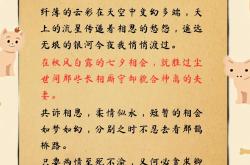 纤薄的云彩在天空中变幻多端，天
上的流星传递着相思的愁怨，遥远
无垠的银河今夜我悄悄渡过。
在秋风白露的七夕相会，就胜过尘
世间那些长相厮守却貌合神离的夫
妻。
共诉相思，柔情似水，短暂的相会
如梦如幻，分别之时不忍去看那鹊
桥路。
只要两情至死不渝，又何必贪求卿